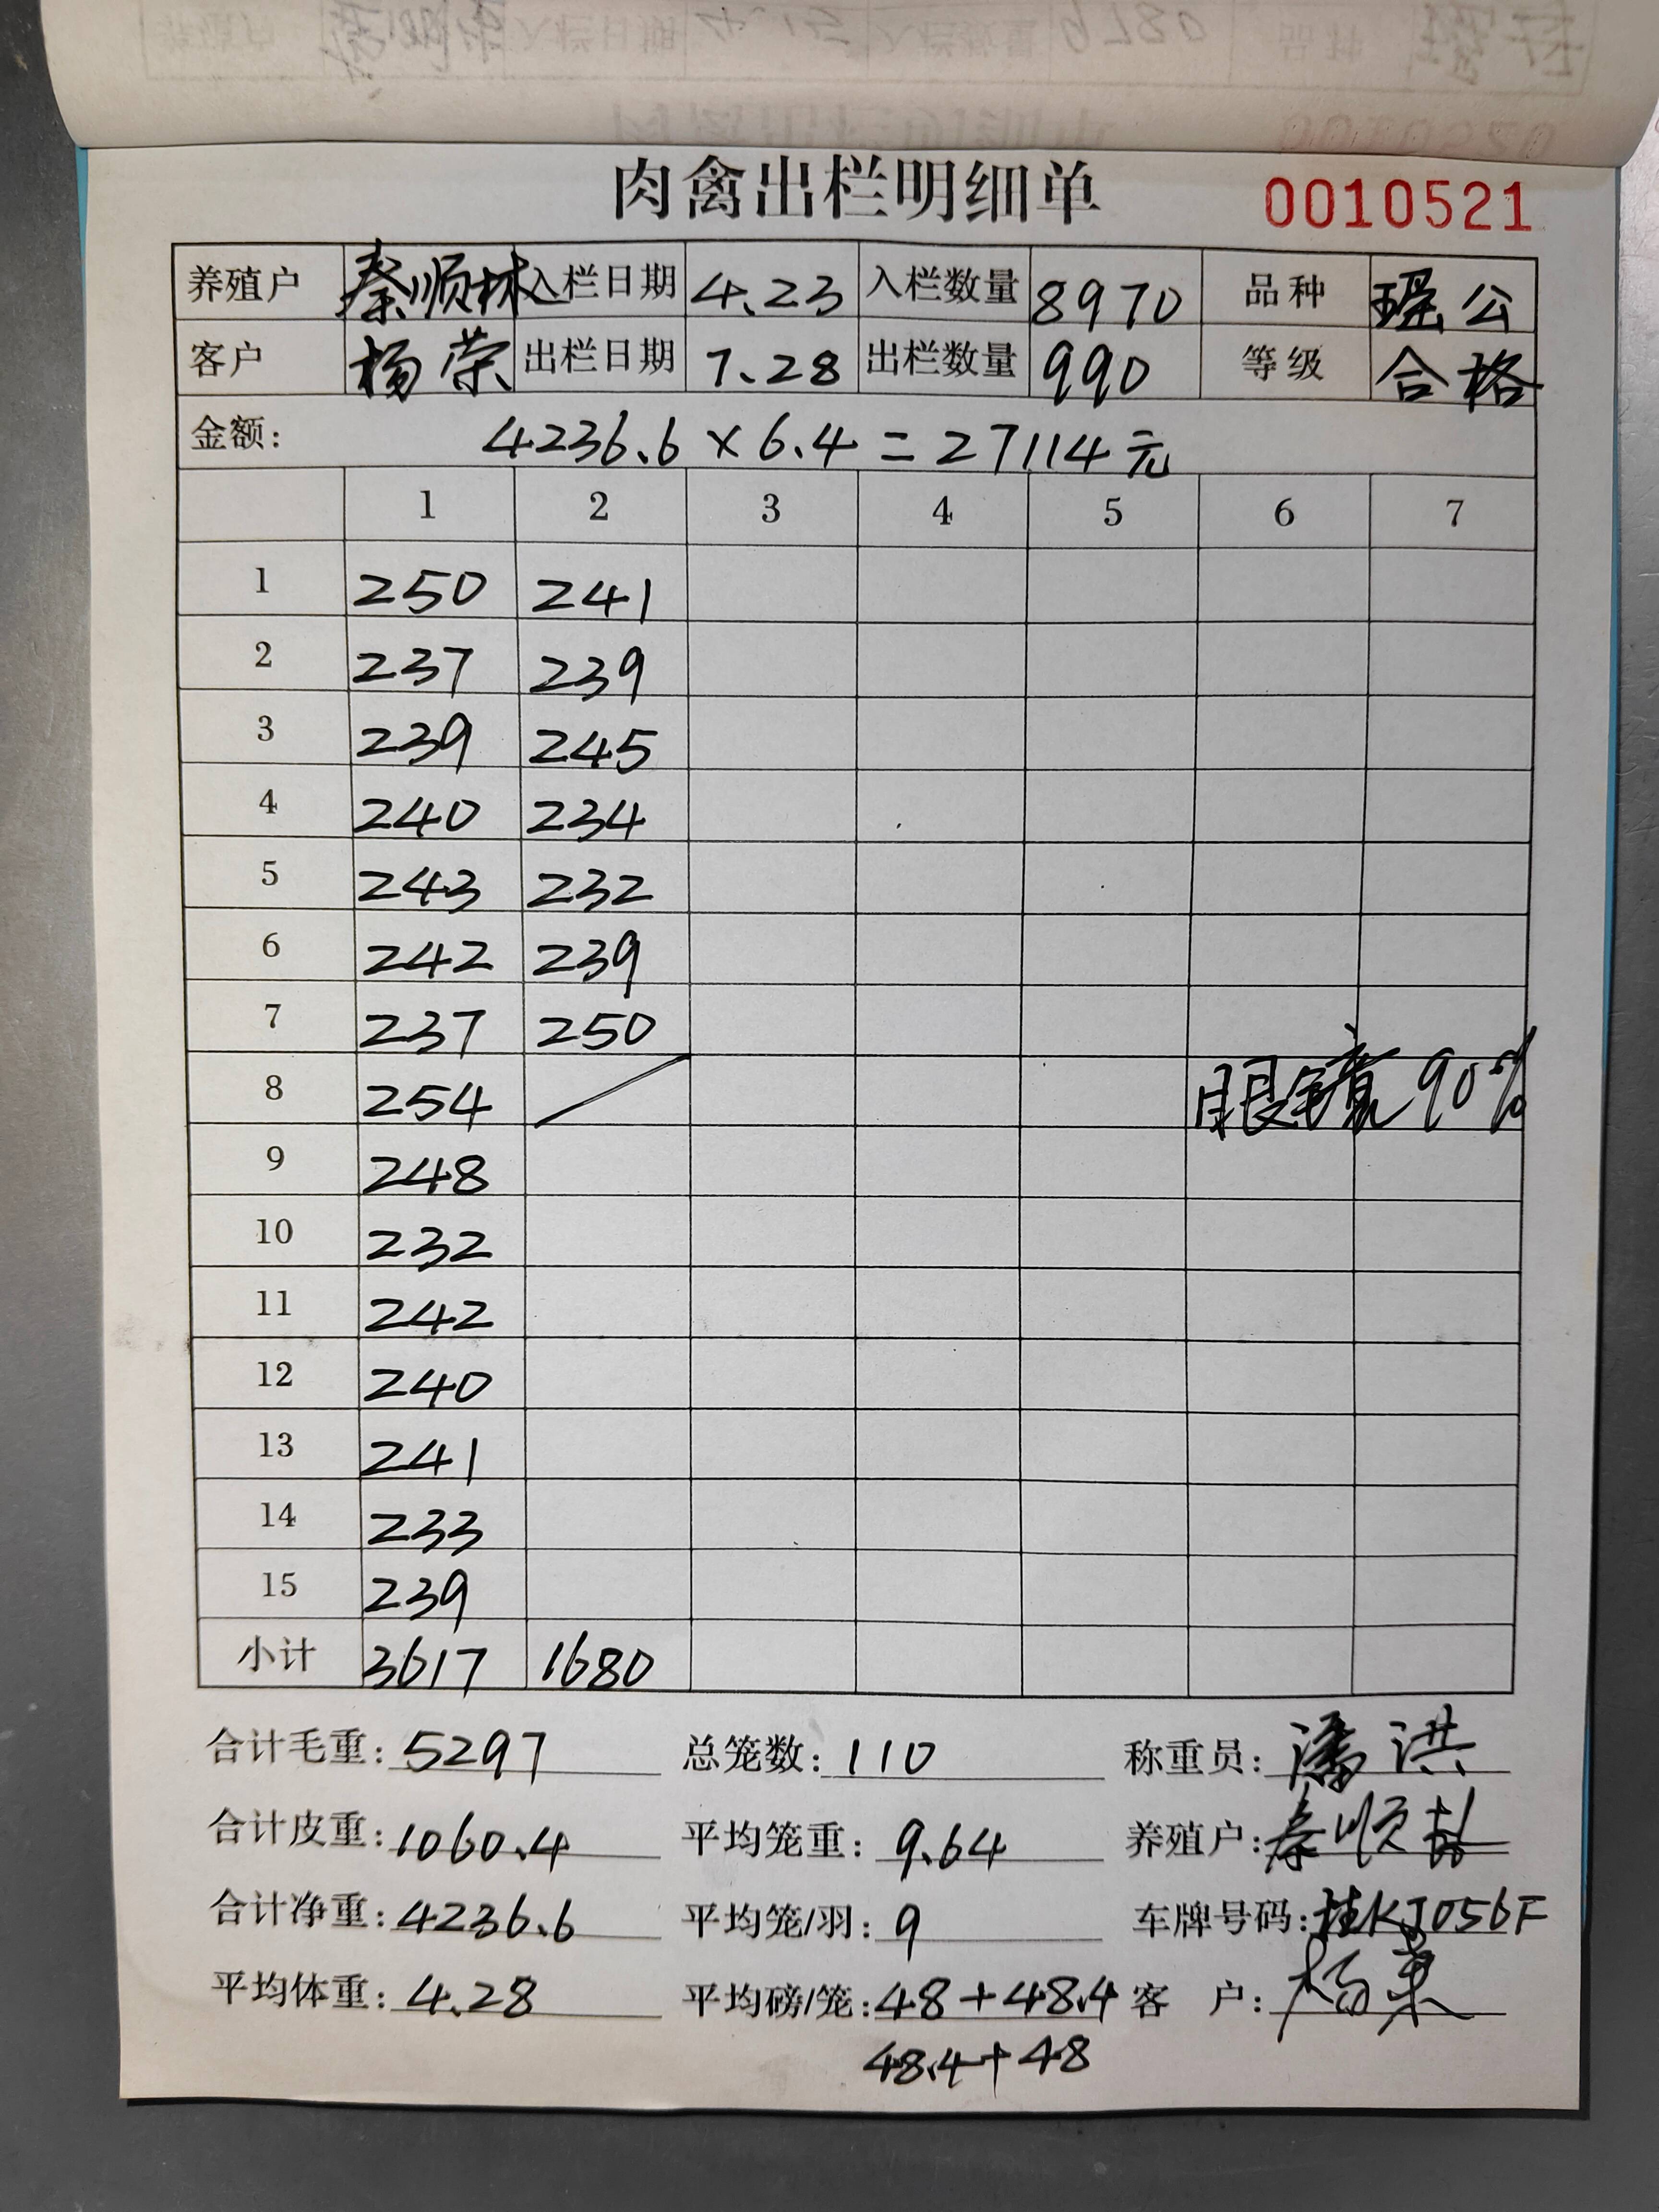 肉禽出栏明细单 0010521
养殖户 秦顺林 入栏日期 4.23 入栏数量 8970 品种 瑶公
客户 杨荣 出栏日期 7.28 出栏数量 990 等级 合格
金额: 4236.6 × 6.4 = 27114元
1 2 3 4 5 6 7
1 250 241
2 237 239
3 239 245
4 240 234
5 243 232
6 242 239
7 237 250
8 254 / 眼镜90%
9 248
10 232
11 242
12 240
13 241
14 233
15 239
小计 3617 1680
合计毛重: 5297 总笼数: 110 称重员: 潘洪
合计皮重: 1060.4 平均笼重: 9.64 养殖户: 秦顺林
合计净重: 4236.6 平均笼/羽: 9 车牌号码: 桂KJ056F
平均体重: 4.28 平均磅/笼: 48+48.4 客 户: 杨荣
48.4+48